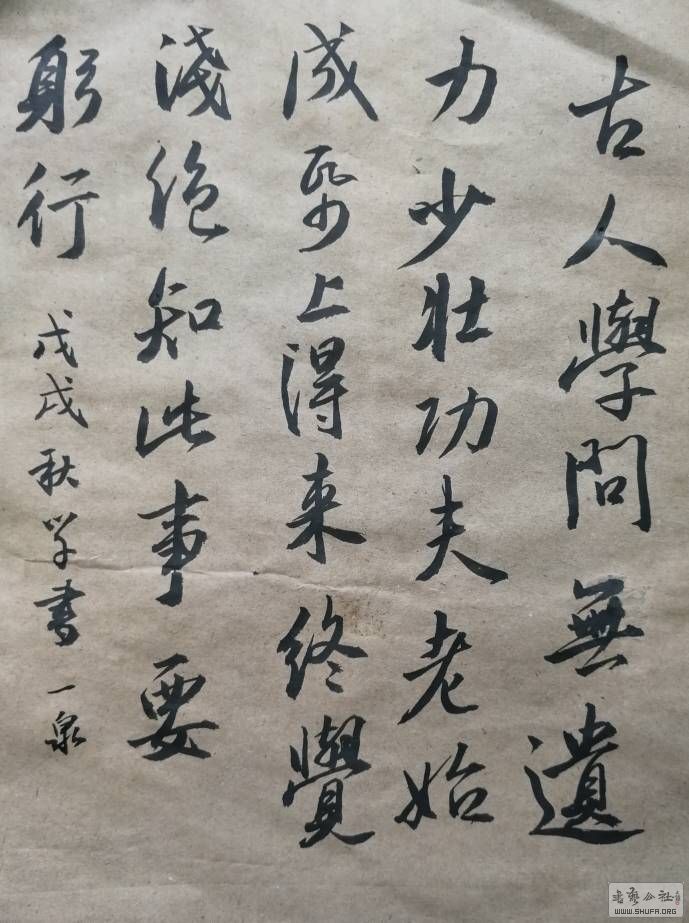 古人學問無遺
力少壯功夫老始
成帋上得来終覺
淺絶知此事要
躬行
戊戌秋学書 一泉
書藝公社
WWW.SHUFA.ORG